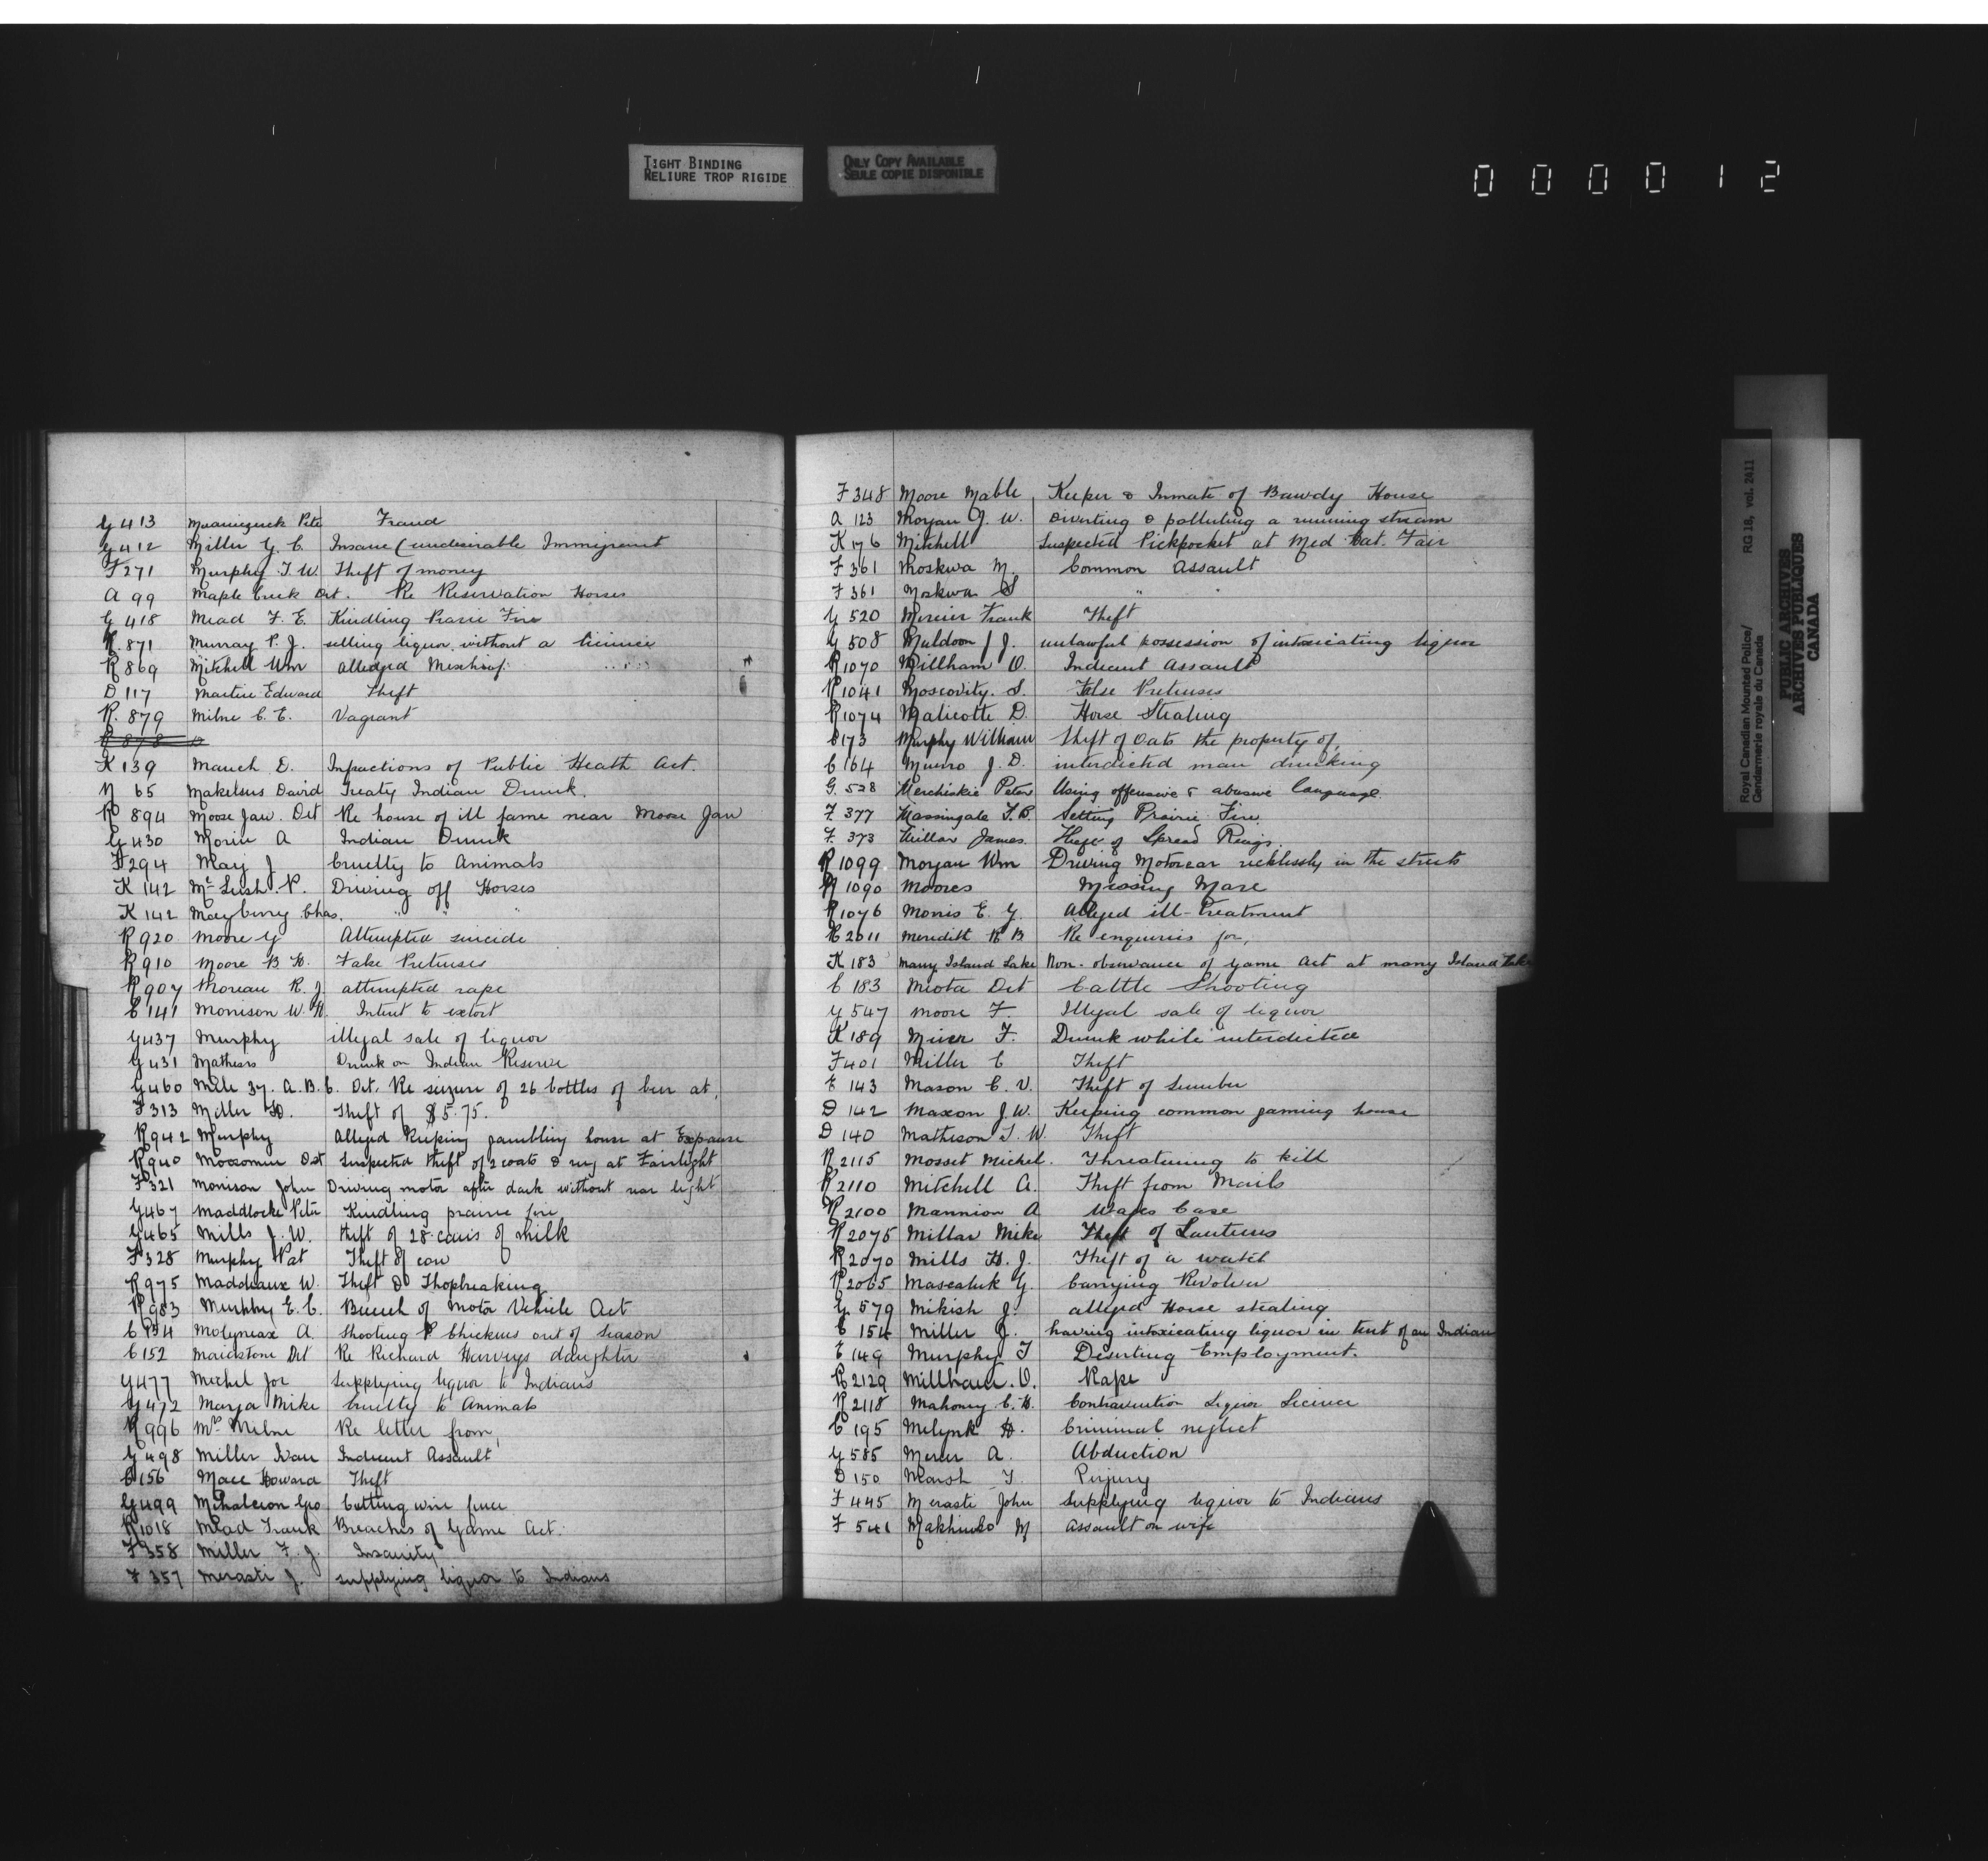 TIGHT BINDING
RELIURE TROP RIGIDE
ONLY COPY AVAILABLE
SEULE COPIE DISPONIBLE
000012
G 413 Pete Fraud
G 412 Miller G. C. Insane (undesirable Immigrant
F 271 Murphy T. W. Theft of money
A 99 Maple Creek Det. Re Reservation Horses
G 418 Mead F. E. Kindling Prarie Fire
R. 871 Murray P. J. selling liquor without a licence
R 869 Mitchell Wm alledged Mischief
D 117 Martin Edward Theft
R. 879 Milne C. E. Vagrant
R 878
K 139 Mauch D. Infractions of Public Heath Act.
N 65 Makelsus David Treaty Indian Drunk.
R 894 Moose Jaw. Det Re house of ill fame near Moose Jaw
G 430 Morin A Indian Drunk
F 294 May J Cruelty to Animals
K 142 Mc Lush. P. Driving off Horses
K 142 Mayberry Chas. " " "
R 920 Moore G Attempted suicide
R 910 Moore B H. False Pretenses
R 907 Moreau R. J. attempted rape
C 141 Morrison W. H. Intent to extort
G 437 Murphy illegal sale of liquor
G 431 Mathers Drunk on Indian Reserve
G 460 Mile 37. A. B. C. Det. Re seizure of 26 bottles of beer at,
F 313 Miller H. Theft of $5.75.
R 942 Murphy Alleged Keeping gambling house at Expanse
R 940 Moosomin Det Suspected theft of 2 coats & rug at Fairlight
F 321 Morrison John Driving motor after dark without rear light
G 467 Maddlocke Peter Kindling prairie fire
G 465 Mills J. W. theft of 28 cans of milk
F 328 Murphy Pat Theft of cow
R 975 Maddeaux W. Theft & Shopbreaking
R 983 Murphy E. C. Breech of Motor Vehicle Act
C 154 Molyneax A. Shooting P Chickens out of Season
C 152 Maidstone Det Re Richard Harveys daughter
G 477 Michel Joe Supplying liquor to Indians
G 472 Marja Mike Cruelty to Animals
R 996 Mrs Milne Re letter from,
G 498 Miller Ivan Indecent Assault
C 156 Mace Howard Theft
G 499 Mihalcion Geo Cutting wire fence
R 1018 Mead Frank Breaches of Game Act.
F 358 Miller F. J. Insanity
F 357 Merasti J. supplying liquor to Indians
F 348 Moore Mable Keeper & Inmate of Bawdy House
A 123 Morgan J. W. Diverting & polluting a running stream
K 176 Mitchell Suspected Pickpocket at Med Hat. Fair
F 361 Moskwa M. Common Assault
F 361 Moskwa S " "
G 520 Mercier Frank Theft
G 508 Muldoon J J. unlawful possession of intoxicating liquor
R 1070 Millham O. Indecent Assault
R 1041 Moscovity. S. False Pretenses
R 1074 Malicotte D. Horse Stealing
C 173 Murphy William theft of oats the property of,
C 164 Munro J. D. interdicted man drinking
G. 528 Merchiskie Peter Using offensive & abusive language.
F. 377 Massingale T. B. Setting Prairie Fire.
F. 373 Millar James. Theft of Spread Rings.
R 1099 Morgan Wm Driving Motorcar recklessly in the streets
R 1090 Moores Missing Mare
R 1076 Morris E. G. Alleged ill-treatment
R 2011 Meredith R B Re enquiries for,
K 183 Many Island Lake Non-observance of Game Act at Many Island Lake
C 183 Meota Det Cattle Shooting
G 547 Moore F. Illegal sale of liquor
K 189 Miver F. Drunk while interdicted
F 401 Miller C Theft
E 143 Mason C. V. Theft of Lumber
D 142 Maxon J. W. Keeping common gaming house
D 140 Matheson T. W. Theft
R 2115 Mosset Michel. Threatening to kill
R 2110 Mitchell A. Theft from Mails
R 2100 Mannion A Wages Case
R 2075 Millar Mike Theft of Lanterns
R 2070 Mills H. J. Theft of a watch
R 2065 Mascaluk G. Carrying Revolver
G. 579 Mikish J. alleged Horse stealing
C 154 Miller J. having intoxicating liquor in tent of an Indian
E 149 Murphy T Deserting Employment.
R 2129 Millham. O. Rape
R 2118 Mahoney C. H. Contravention Liquor Licence
C 195 Melynk H. Criminal neglect
G 585 Mercer A. Abduction
D 150 Marsh T. Perjury
F 445 Merasti John Supplying liquor to Indians
F 541 Makhinko M Assault on wife
Royal Canadian Mounted Police/ RG 18, vol. 2411
Gendarmerie royale du Canada
PUBLIC ARCHIVES
ARCHIVES PUBLIQUES
CANADA